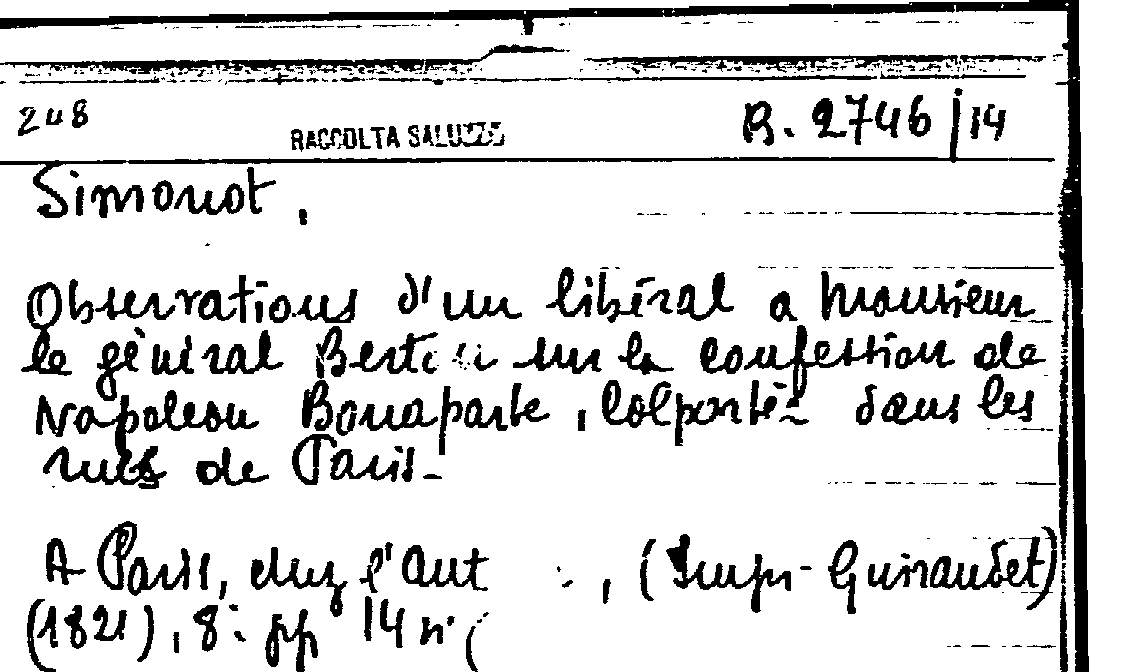 248
RACCOLTA SALUZZO
B. 2746/14
Simonot,
Observations d'un libéral a Monsieur
le général sur la confession de
Napoleon Bonaparte, Colportée dans les
rues de Paris-
A Paris, chez l'Aut , (Impr- Guiraudet)
(1821), 8: pp 14 n. (